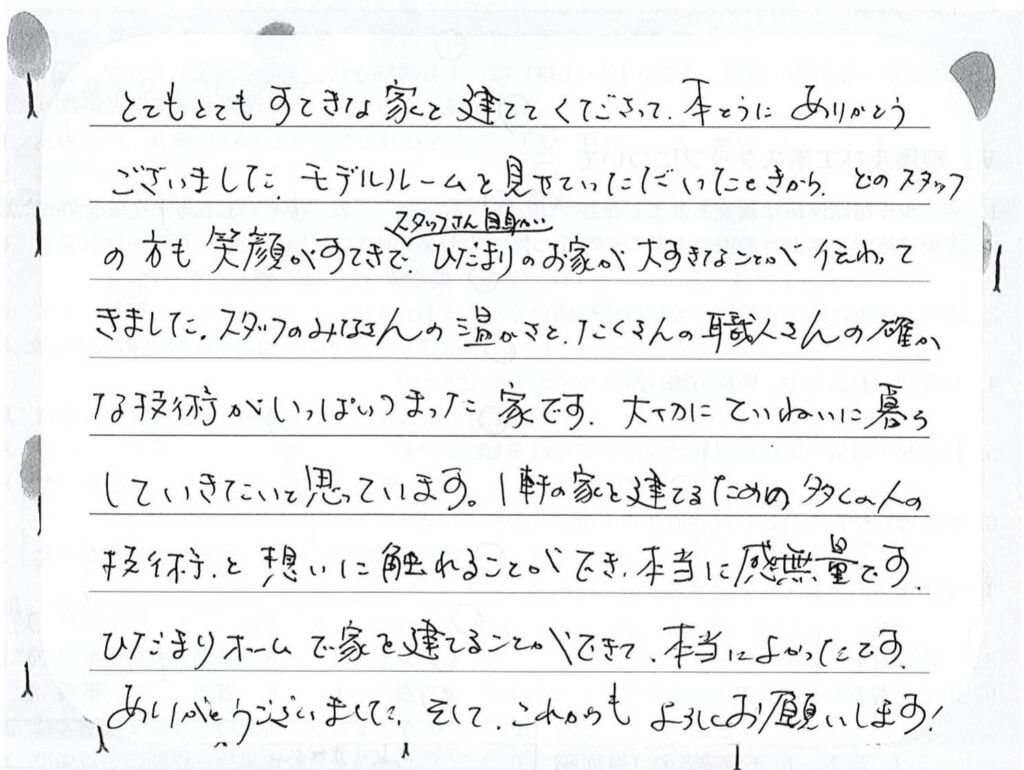 とてもとてもすてきな家を建ててくださって、本とうにありがとう
ございました。モデルルームを見せていただいたときから、どのスタッフ
の方も笑顔がすてきで、スタッフさん自身がひだまりのお家が大すきなことが伝わって
きました。スタッフのみなさんの温かさと、たくさんの職人さんの確か
な技術がいっぱいつまった家です。大切にていねいに暮ら
していきたいと思っています。1軒の家を建てるための多くの人の
技術と想いに触れることができ、本当に感無量です。
ひだまりホームで家を建てることができて、本当によかったです
ありがとうございました。そして、これからもよろしくお願いします!